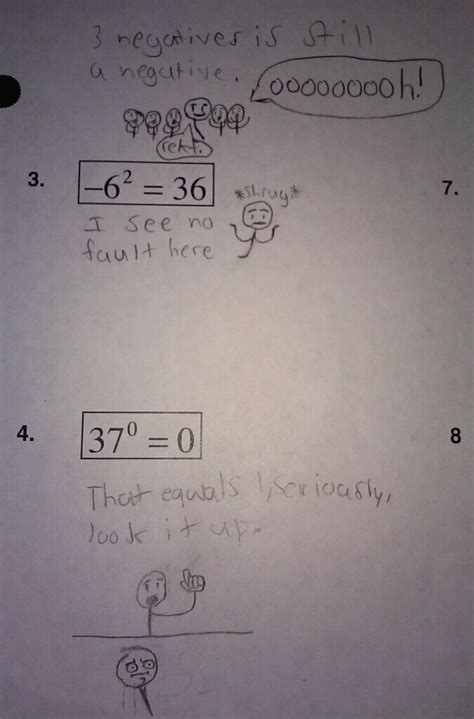 3 negatives is still
a negative.
ooooooooh!
rekt.
3.
−6² = 36
*shrug*
7.
I see no
fault here
4.
37⁰ = 0
8
That equals 1, seriously,
look it up.